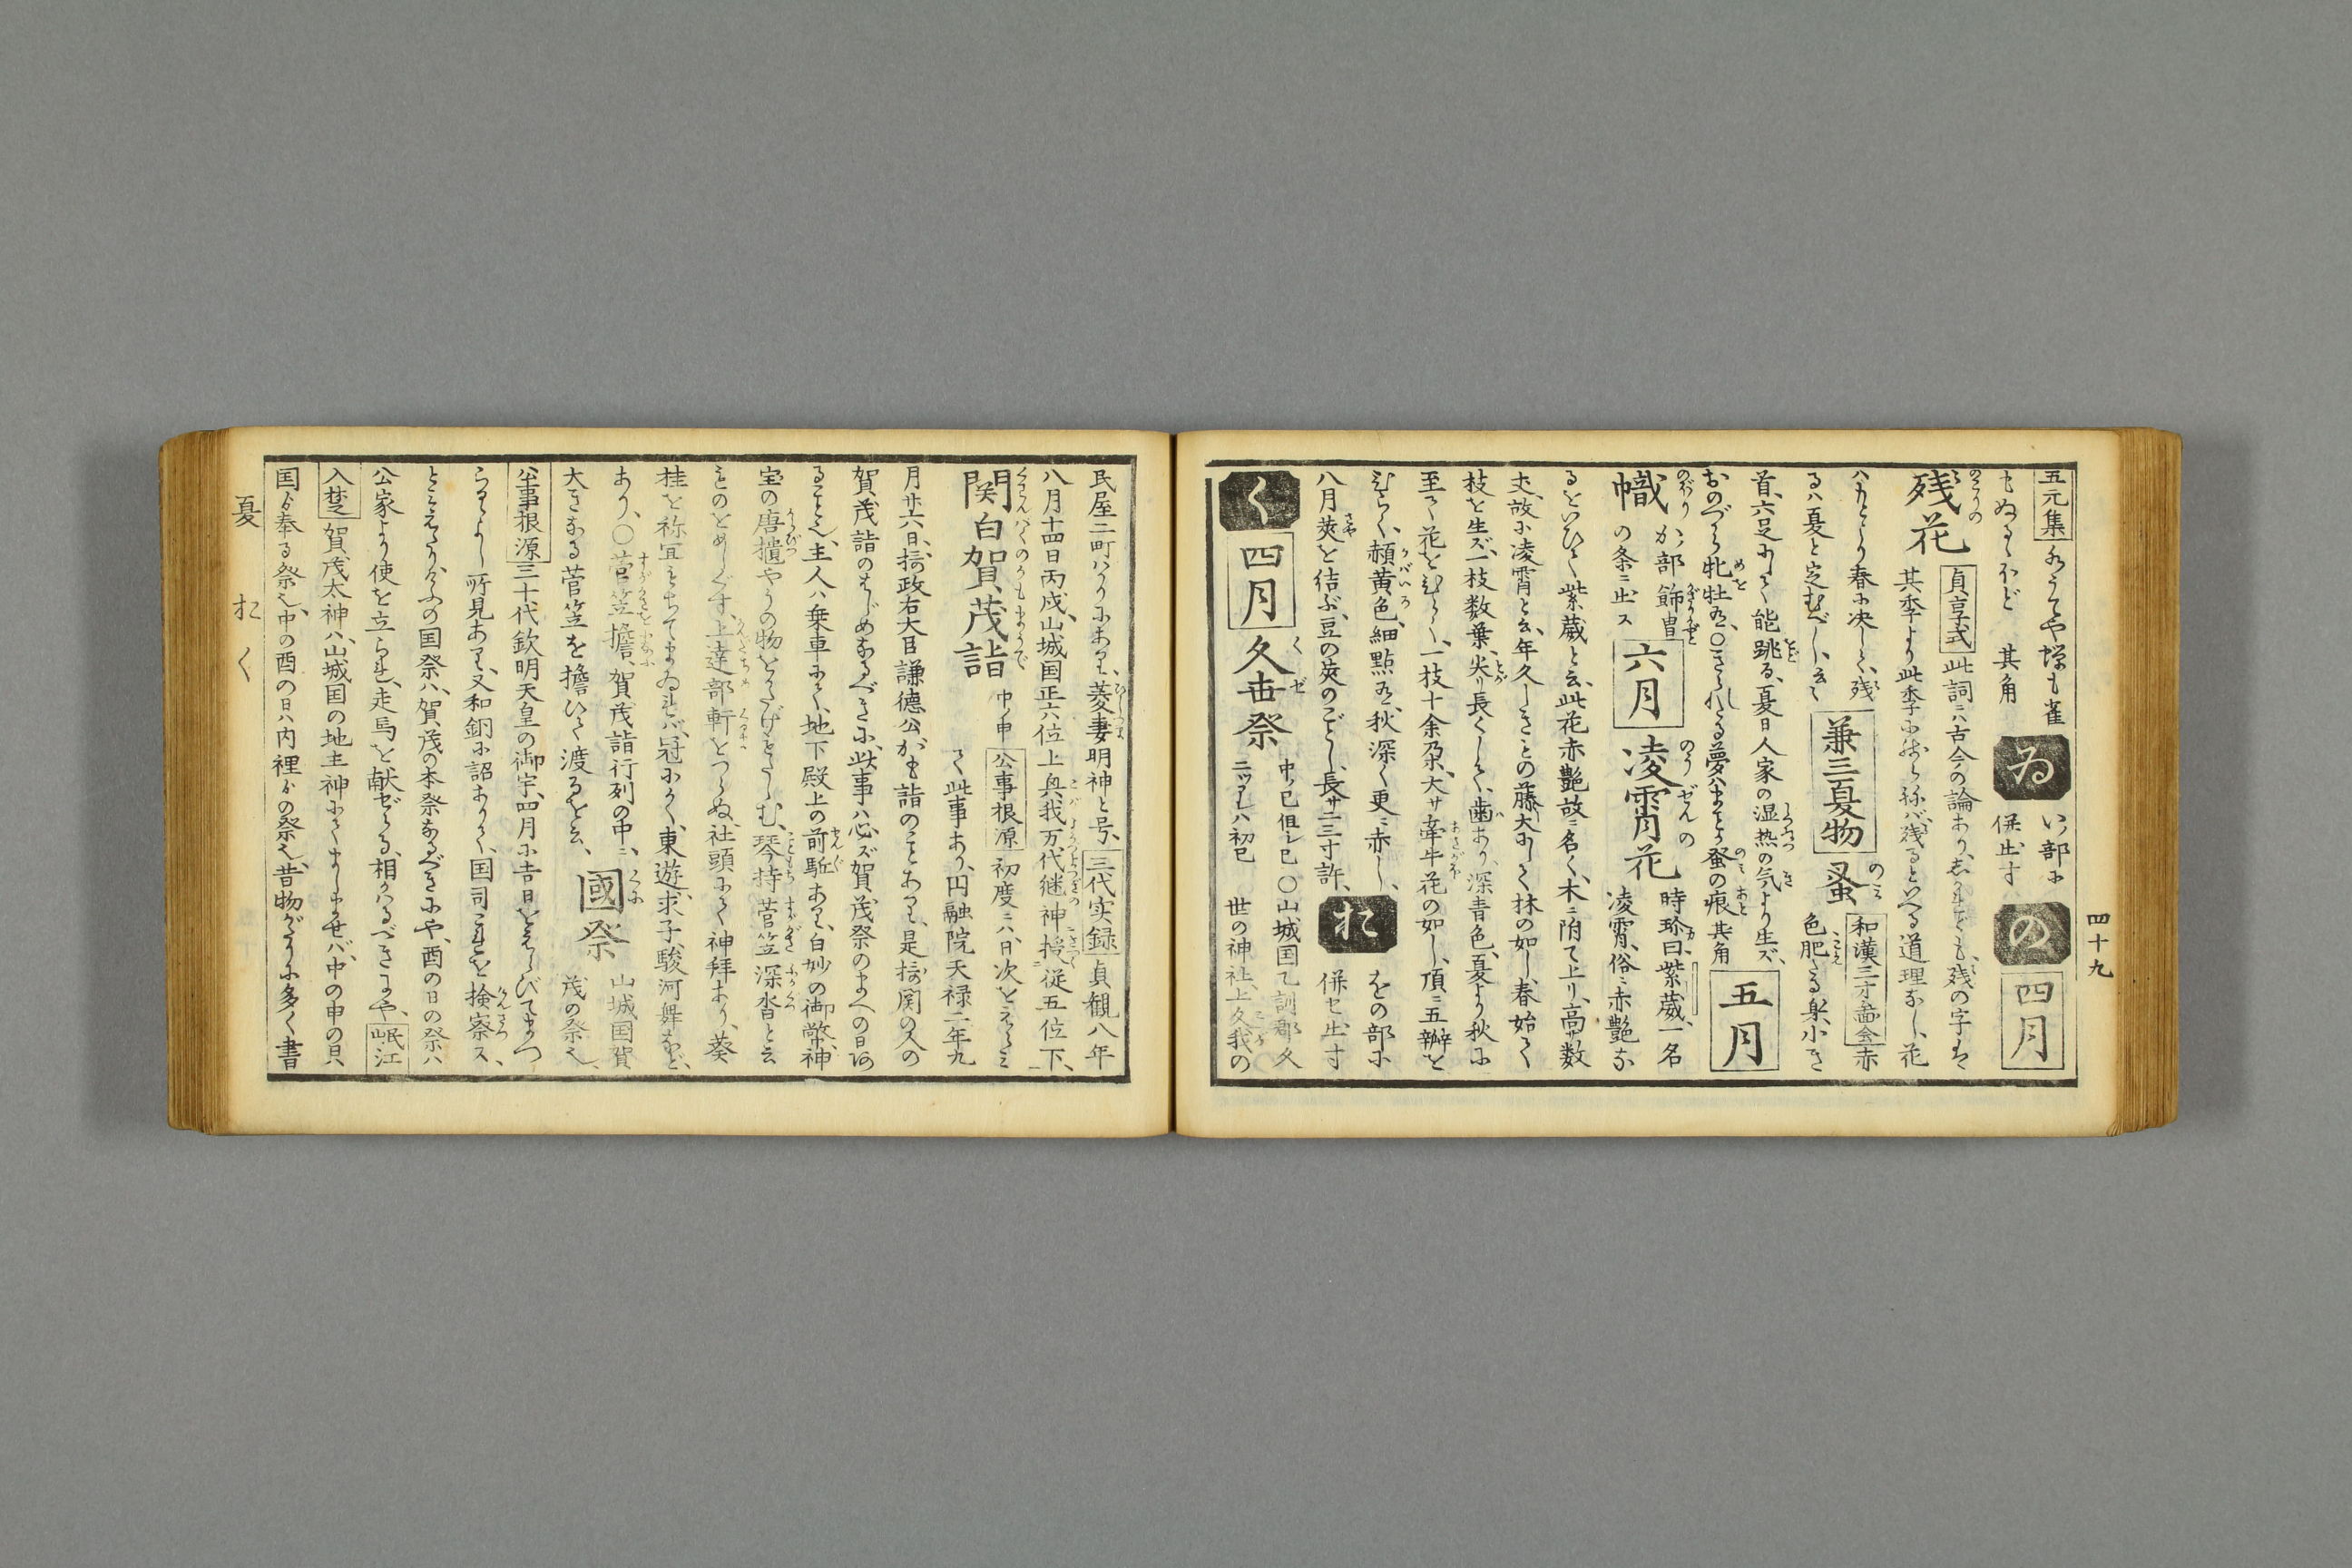 四十九
五元集 水うてや蝉も雀
もぬるゝほど 其角 ゐ い部に併出す の 四月
残花 のこりの 貞享式 此詞ハ古今の論あり、されども、残の字は
其季より此季に残らねバ、残るといへる道理なし、花
ハもとより春に決し、残
るハ夏と定むべし、云々 兼三夏物 蚤 のみ 和漢三才畵会 赤
色肥たる身、小き
首、六足ありて能跳る、夏日人家の湿熱の気より生ズ、
おのづら牝牡有、○きられたる夢ハまことか蚤の痕 其角 五月
幟 のぼり か部 飾冑の条ニ出ス 六月 凌霄花 のうぜんの 時珍曰、紫葳、一名
凌霄、俗ニ赤艶な
るをいひて紫葳と云、此花赤艶故ニ名く、木ニ附て上リ、高サ数
丈、故に凌霄と云、年久しきもの藤大にして抹の如し、春始て
枝を生ズ、一枝数葉、尖リ長くして、歯あり、深青色、夏より秋に
至て花をひらく、一枝十余朶、大サ牽牛花の如し、頂ニ五瓣を
ひらく、赬黄色、細點有、秋深く更ニ赤し、 お をの部に
八月莢を結ぶ、豆の莢のごとし、長サ三寸許、 併セ出す
く 四月 久世祭 くぜ 中ノ巳但シ二ツアレハ初巳 ○山城国乙訓郡久
世の神社、上久我の
民屋二町バカリにあり、菱妻明神と号、三代実録 貞観八年
八月十四日丙戌、山城国正六位上與我万代継神授従五位下、
関白賀茂詣 くわんばくのかもまうで 中ノ申 公事根源 初度ニハ、日次をえらミ
て此事あり、円融院天禄二年九
月廿六日、摂政右大臣謙徳公がも詣のことあり、是摂関の人の
賀茂詣のはじめなるべきに、此事ハ必ズ賀茂祭のまへの日ある
ること也、主人ハ乗車にて、地下殿上の前駈あり、白妙の御幣、神
宝の唐櫃やうの物をさゝげもたしむ、琴持菅笠深沓と云
ものをめしぐす、上達部軒をつらぬ、社頭にて神拝あり、葵
桂を祢宜もちてまゐれバ、冠にかく、東遊、求子駿河舞など
あり、○菅笠擔、賀茂詣行列の中ニ、
大きなる菅笠を擔ひて渡ると云、 國祭 くにの 山城国賀
茂の祭也、
公事根源 三十代欽明天皇の御宇、四月に吉日をえらびてまつ
らるよし所見あり、又和銅に詔ありて、国司これを検察ス、
とミえたり、かやうの国祭ハ、賀茂の本祭なるべきにや、酉の日の祭ハ
公家より使を立られ、走馬を献ぜらる、相かハるべきにや、岷江
入楚 賀茂太神ハ、山城国の地主神にてましませバ、中の申の日ハ
国ゟ奉る祭也、中の酉の日ハ内裡ゟの祭也、昔物がたりに多く書
夏 お く